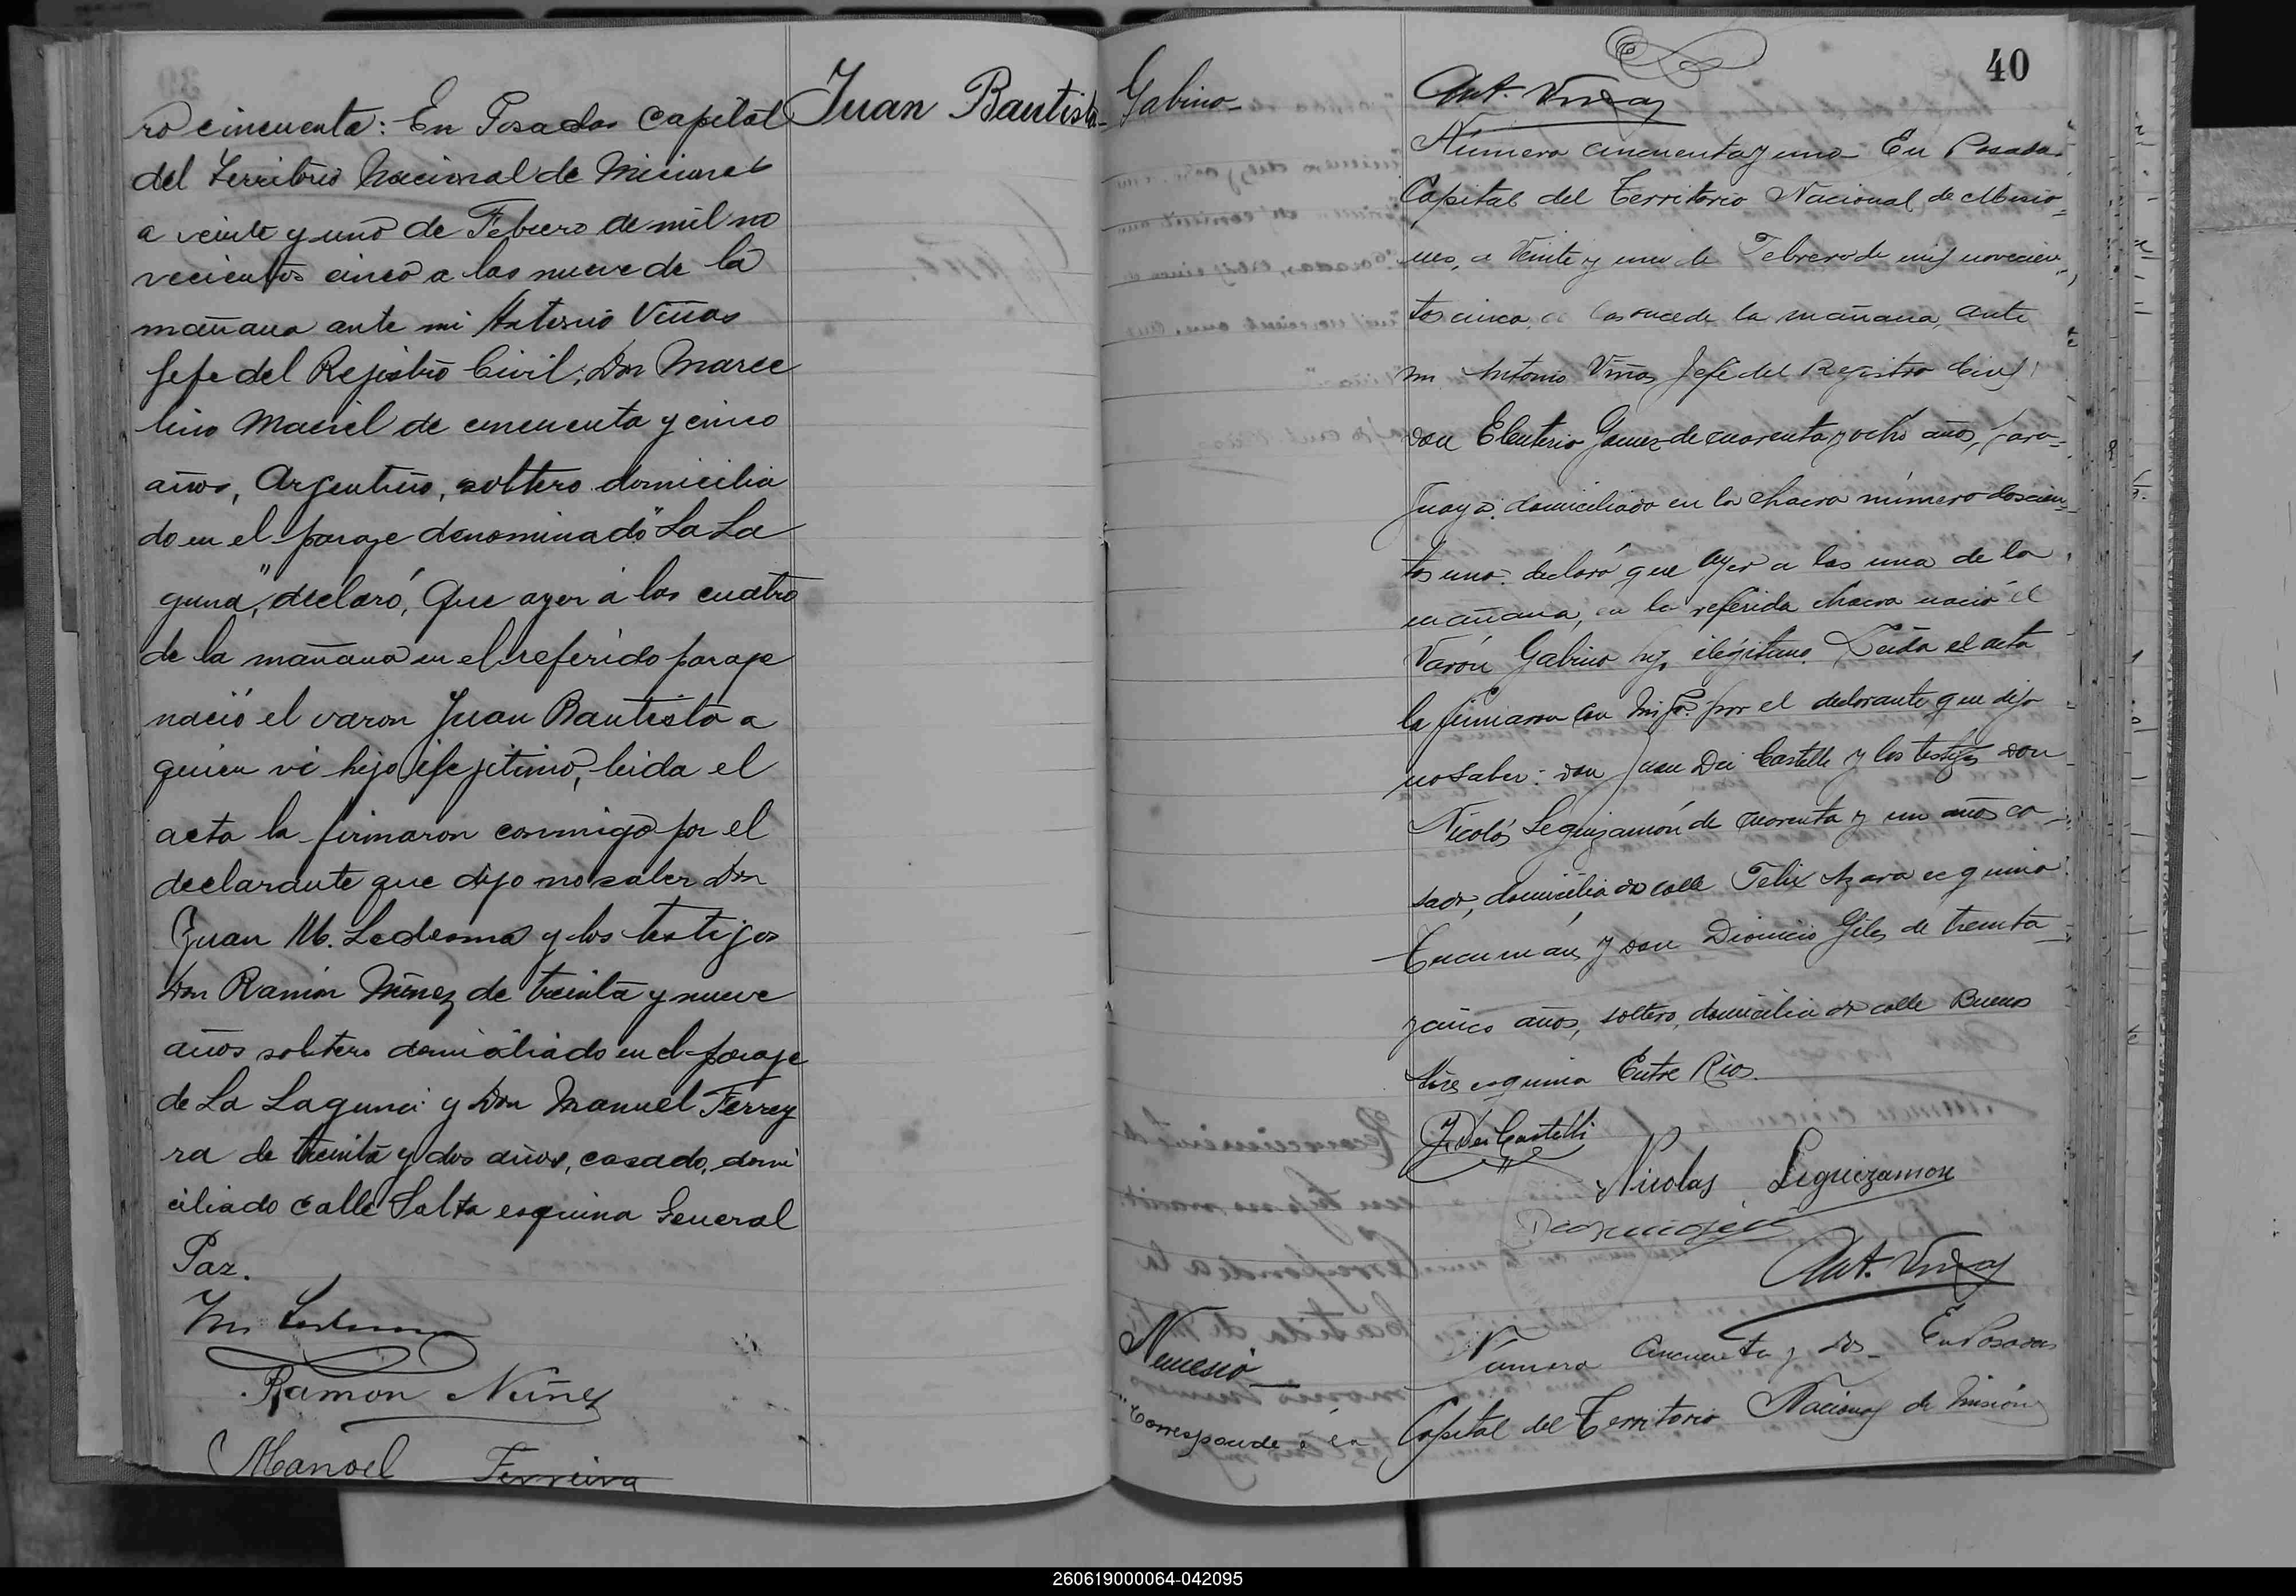 ro cincuenta: En Posadas Capital
del Territorio Nacional de Misiones
a veinte y uno de Febrero de mil no
vecientos cinco a las nueve de la
mañana ante mi Antonio Viñas
Jefe del Rejistro Civil, Don Marce
lino Maciel de cincuenta y cinco
años, Argentino, soltero domicilia
do en el paraje denominado "La La
guna," declaró, Que ayer á las cuatro
de la mañana en el referido paraje
nació el varon Juan Bautista a
quien vi hijo ilejitimo, leida el
acta la firmaron conmigo por el
declarante que dijo no saber Don
Juan M. Ledesma y los testigos
Don Ramón Núnez de treinta y nueve
años soltero domiciliado en el paraje
de La Laguna y Don Manuel Ferrey
ra de treinta y dos años, casado, domi
ciliado calle Salta esquina General
Paz.
Jn Ledesma
Ramon Nuñez
Manoel Ferreira
Juan Bautista
Gabino
40
Ant. Viñas
Número cincuenta y uno En Posadas
Capital del Territorio Nacional de Misio=
nes, a Veinte y uno de Febrero de mil novecien
tos cinco, a las once de la mañana, ante
mi Antonio Viñas Jefe del Registro Civil
don Eleuterio Gomez de cuarenta y ocho años, para=
guayo: domiciliado en la chacra número doscien
tos uno: declaró que ayer a las una de la
mañana, en la referida chacra nació el
Varón Gabino hijo ilégitimo. Leida el acta
la firmaron con migo por el declarante que dijo
no saber: don Juan Dei Castelli y los testigos don
Nicolás Leguizamón de cuarenta y un años ca
sado, domiciliado calle Felix Azara esquina
Tucumán y don Dionicio Giles de treinta
y cinco años, soltero, domiciliado calle Buenos
Aires esquina Entre Rios.
J. Dei Castelli
Nicolas Leguizamon
Ant. Viñas
Nemesio
Corresponde á la
Número Cincuenta y dos En Posadas
Capital del Territorio Nacional de Mision
260619000064-042095